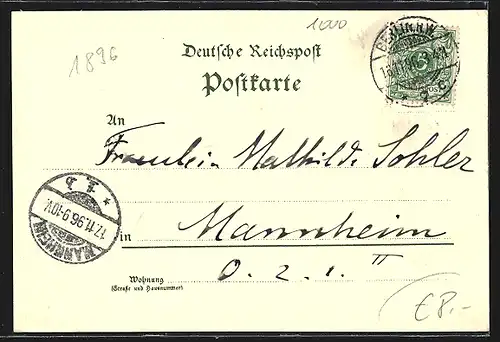 1000
1896
Deutsche Reichspost
Postkarte
BERLIN.N.W.
16.11.96.
7 c
An
Fräulein Mathilde Sohler
MANNHEIM
17.11.96.9-10V.
in Mannheim
O. 2. 1. II
Wohnung
(Straße und Hausnummer)
€ 8.-